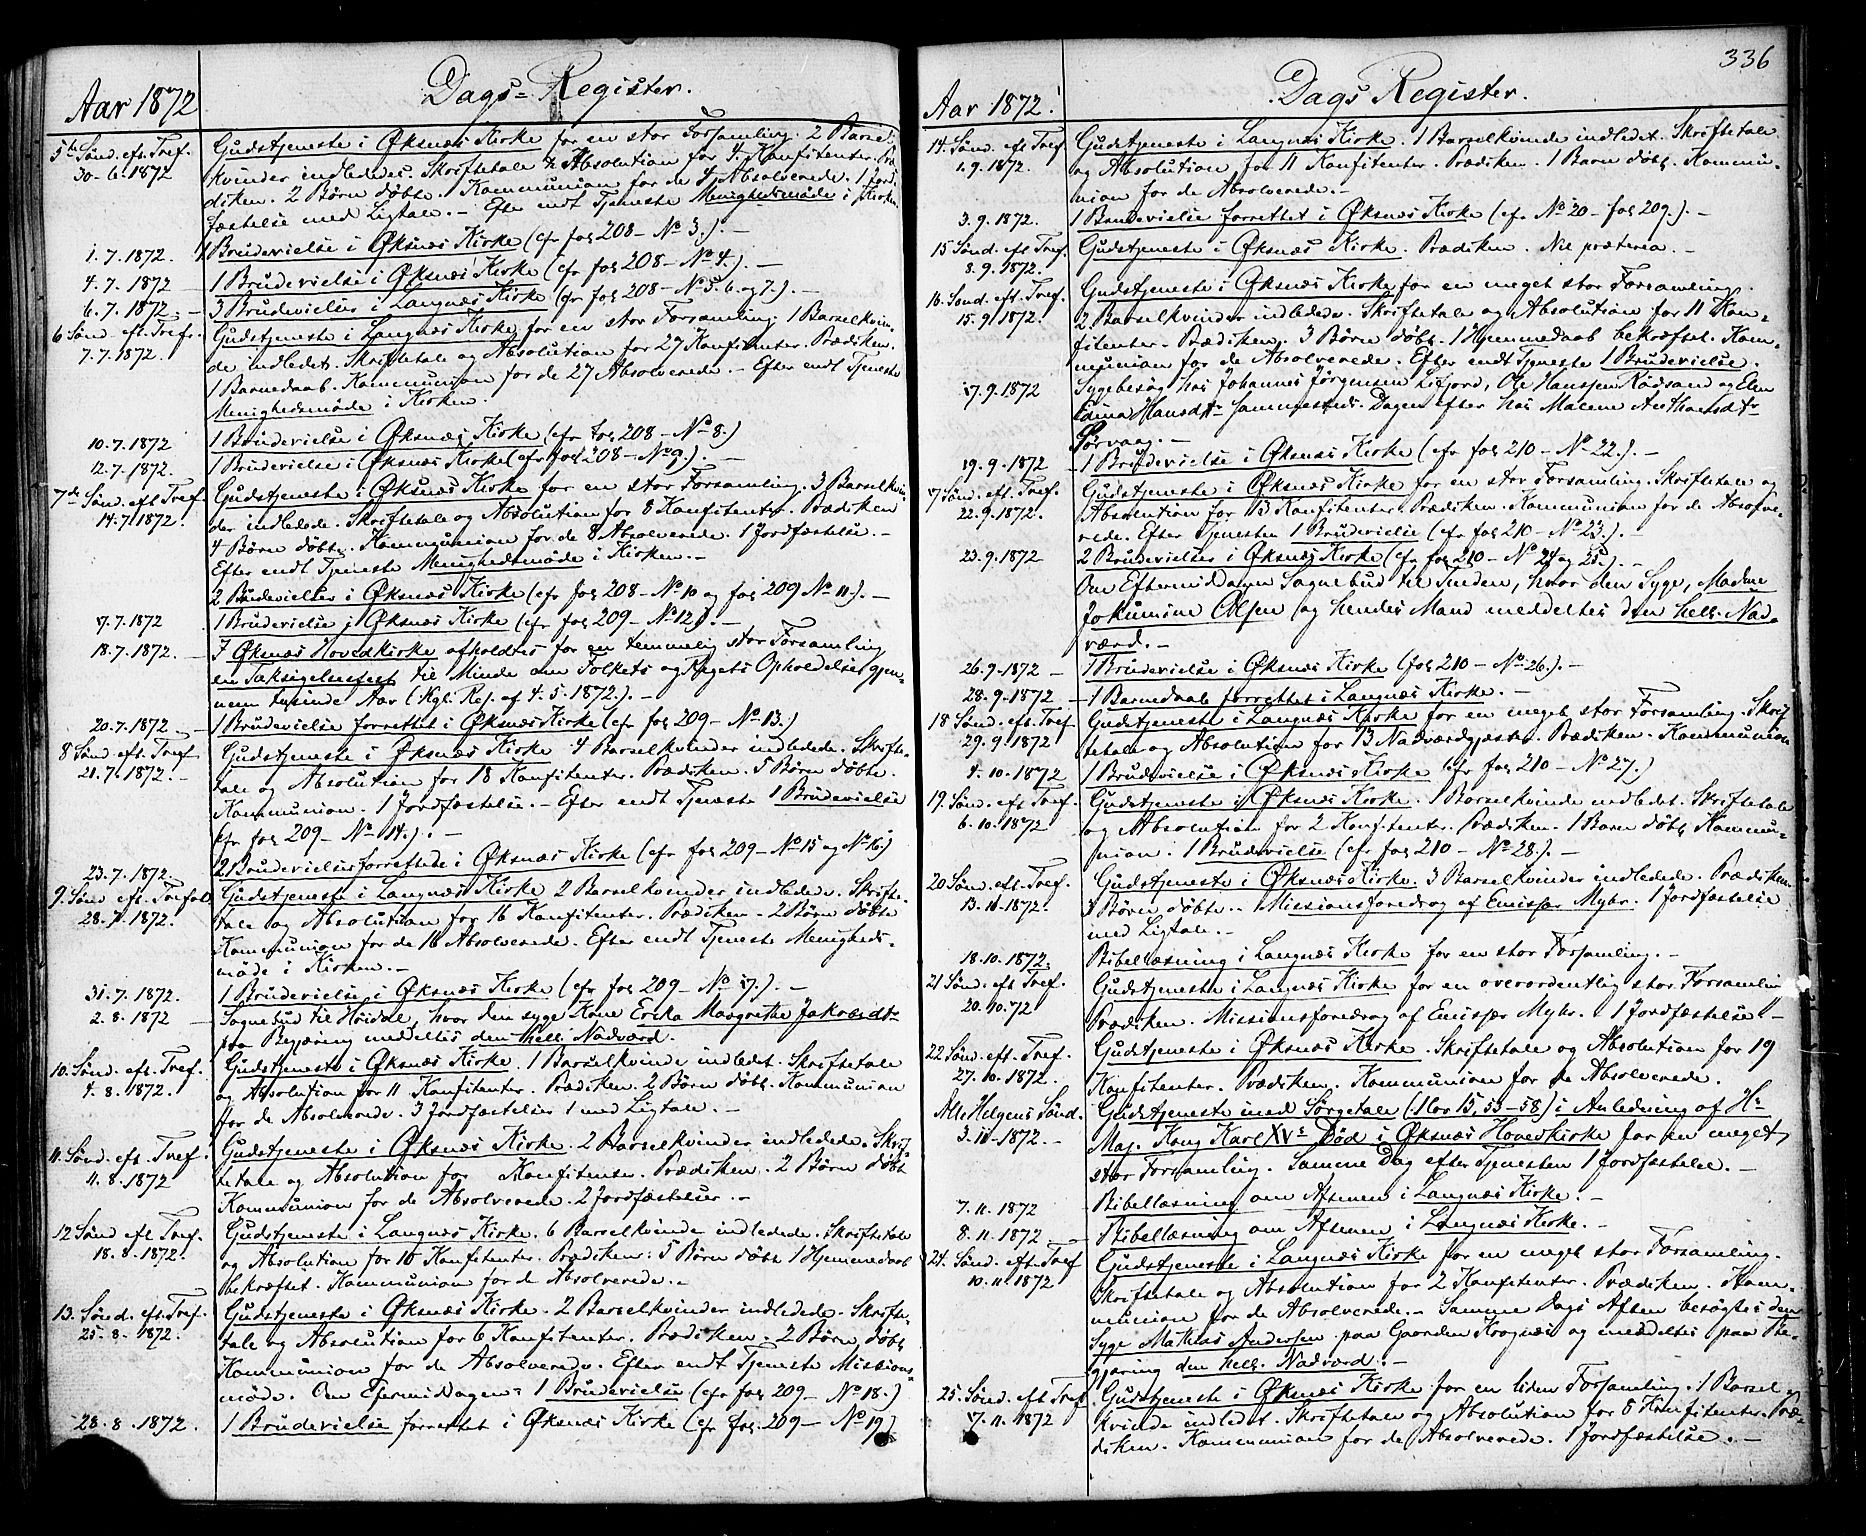 Aar 1872
Dags-Register.
5te Sønd. eft. Tref.
30-6.1872
Gudstjeneste i Øksnæs Kirke for en stor Forsamling. 2 Barsel-
kvinder indledes. Skriftetale & Absolution for 4 Konfitenter. Præ-
diken. 2 Børn døbte. Kommunion for de 4 Absolverede. 1 Jord-
fæstelse med Ligtale. – Efter endt Tjeneste Menighedsmøde i Kirken.
1.7.1872.
1 Brudevielse i Øksnæs Kirke (cfr fol 208 – No 3.). –
4.7.1872 –
1 Brudevielse i Øksnæs Kirke (cfr fol 208 – No 4.). –
6.7.1872. –
3 Brudevielser i Langnæs Kirke (cfr fol 208 – No 5. 6. og 7.). –
6 Sønd. eft. Tref.
7.7.1872.
Gudstjeneste i Langnæs Kirke for en stor Forsamling. 1 Barselkvin-
de indledet. Skriftetale og Absolution for 27 Konfitenter. Prædiken.
1 Barnedaab. Kommunion for de 27 Absolverede. – Efter endt Tjeneste
Menighedsmøde i Kirken.
10.7.1872
1 Brudevielse i Øksnæs Kirke (cfr fol 208 – No 8.)
12.7.1872.
1 Brudevielse i Øksnæs Kirke (cfr fol 208 – No 9.). –
7de Sønd. eft Tref.
14.7.1872.
Gudstjeneste i Øksnæs Kirke for en stor Forsamling. 3 Barselkvin-
der indlede. Skriftetale og Absolution for 8 Konfitenter. Prædiken
4 Børn døbte. Kommunion for de 8 Absolverede. 1 Jordfæstelse. –
Efter endt Tjeneste Menighedsmøde i Kirken. –
2 Brudevielser i Øksnæs Kirke (cfr fol 208 – No 10 og fol 209 No 11.). –
17.7.1872
1 Brudevielse i Øksnæs Kirke (cfr fol 209 – No 12). –
18.7.1872. –
I Øksnæs Hovedkirke afholdtes for en temmelig stor Forsamling
en Taksigelsesfest til Minde om Folkets og Rigets Opholdelse gjen-
nem tusinde Aar (Kgl. Res. af 4.5.1872.). –
20.7.1872 –
1 Brudevielse forrettet i Øksnæs Kirke (cfr fol 209 – No 13.)
8 Sønd eft. Tref
21.7.1872. –
Gudstjeneste i Øksnæs Kirke. 4 Barselkvinder indledede. Skrifte-
tale og Absolution for 18 Konfitenter. Prædiken. 5 Børn døbte.
Kommunion. 1 Jordfæstelse. – Efter endt Tjeneste 1 Brudevielse
(cfr fol 209 – No 14.). –
23.7.1872. –
2 Brudevielser forrettede i Øksnæs Kirke (cfr fol 209 – No 15 og No 16.)
9. Sønd eft. Trefold.
28.7.1872.
Gudstjeneste i Langnæs Kirke 2 Barselkvinder indledede. Skrifte-
tale og Absolution for 16 Konfitenter. Prædiken – 2 Børn døbte
Kommunion for de 16 Absolverede. Efter endt Tjeneste Menigheds-
møde i Kirken. –
31.7.1872.
1 Brudevielse i Øksnæs Kirke (cfr fol 209 – No 17.). –
2.8.1872 –
Sognebud til Høidal, hvor den syge Kone Ericka Margrethe Jakobsdtr
paa Begjæring meddeltes den hell. Nadværd.
10. Sønd. eft. Tref.
4.8.1872.
Gudstjeneste i Øksnæs Kirke. 1 Barselkvinde indledet. Skriftetale
og Absolution for 11 Konfitenter. Prædiken. 2 Børn døbt. Kommunion
for de Absolverede. 3 Jordfæstelser 1 med Ligtale. –
11. Sønd. eft. Tref.
11.8.1872
Gudstjeneste i Øksnæs Kirke. 2 Barselkvinder indledede. Skrif-
tetale og Absolution for Konfitenter. Prædiken. 2 Børn døbt
Kommunion for de Absolverede. 2 Jordfæstelser. –
12 Sønd eft Tref.
18.8.1872.
Gudstjeneste i Langnæs Kirke. 6 Barselkvinde indledede. Skriftetale
og Absolution for 10 Konfitenter. Prædiken. 5 Børn døbte 1 Hjemmedaab
bekræftet. Kommunion for de Absolverede. –
13. Sønd. eft. Tref.
25.8.1872.
Gudstjeneste i Øksnæs Kirke. 2 Barselkvinder indledede. Skrifte-
tale og Absolution for 6 Konfitenter. Prædiken. 2 Børn døbt
Kommunion for de Absolverede. Efter endt Tjeneste Missions-
møde. Om Eftermiddagen 1 Brudevielse (cfr fol 209 – No 18.)
28.8.1872.
1 Brudevielse forrettet i Øksnæs Kirke (cfr fol. 209 – No 19)
336
Aar 1872.
Dags Register.
14. Sønd. eft Tref
1.9.1872.
Gudstjeneste i Langnæs Kirke. 1 Barselkvinde indledet. Skriftetale
og Absolution for 11 Konfitenter. Prædiken. 1 Barn døbt. Kommu-
nion for de Absolverede. –
3.9.1872.
1 Brudevielse forrettet i Øksnæs Kirke (cfr No 20 – fol 209.). –
15 Sønd. eft Tref.
8.9.1872.
Gudstjeneste i Øksnæs Kirke. Prædiken. Nil præterea. –
16. Sønd. eft. Tref.
15.9.1872.
Gudstjeneste i Øksnæs Kirke for en meget stor Forsamling.
2 Barselkvinder indledede. Skriftetale og Absolution for 11 Kon-
fitenter. Prædiken. 3 Børn døbt. 1 Hjemmedaab bekræftet. Kom-
munion for de Absolverede. Efter endt Tjeneste 1 Brudevielse.
17.9.1872
Sygebesøg hos Johannes Jörgensen Lifjord, Ole Hansen Rødsand og Elen
Edina Hansdtr sammesteds. Dagen efter hos Malene Anthonsdtr
Sørvaag. –
19.9.1872
1 Brudevielse i Øksnæs Kirke (cfr fol 210 – No 22.). –
17 Sønd. eft. Tref.
22.9.1872.
Gudstjeneste i Øksnæs Kirke for en stor Forsamling. Skriftetale og
Absolution for 13 Konfitenter. Prædiken. Kommunion for de Absolve-
rede. Efter Tjenesten 1 Brudevielse (cfr fol 210 – No 23.). –
23.9.1872
2 Brudevielser i Øksnæs Kirke (cfr fol 210 – No 24 og 25.). –
Om Eftermiddagen Sognebud til Sneden, hvor den Syge, Madme
Jokumine Olsen og hendes Mand meddeltes den hell. Nad-
værd. –
26.9.1872 –
1 Brudevielse i Øksnæs Kirke (fol 210 – No 26.). –
28.9.1872 –
1 Barnedaab forrettet i Langnæs Kirke. –
18 Sønd. eft. Tref
29.9.1872
Gudstjeneste i Langnæs Kirke for en meget stor Forsamling. Skrif-
tetale og Absolution for 13 Nadværdgjæster. Prædiken. Kommunion
4.10.1872
1 Brudevielse i Øksnæs Kirke (cfr fol 210 – No 27.)
19. Sønd. eft Tref.
6.10.1872
Gudstjeneste i Øksnæs Kirke. 1 Barselkvinde indledet. Skriftetale
og Absolution for 2 Konfitenter. Prædiken. 1 Barn døbt. Kommu-
nion. 1 Brudevielse (cfr fol 210 – No 28.). –
20 Sønd. eft. Tref.
13.10.1872.
Gudstjeneste i Øksnæs Kirke. 3 Barselkvinder indledede. Prædiken.
3 Børn døbte. – Missionsforedrag af Emissær Myhr. 1 Jordfæstelse
med Ligtale. –
18.10.1872.
Bibellæsning i Langnæs Kirke for en stor Forsamling. –
21 Sønd. eft. Tref.
20.10.72
Gudstjeneste i Langnæs Kirke for en overordentlig stor Forsamling
Prædiken. Missionsforedrag af Emissær Myhr. 1 Jordfæstelse –
22 Sønd. eft. Tref.
27.10.1872.
Gudstjeneste i Øksnæs Kirke. Skriftetale og Absolution for 19
Konfitenter. Prædiken. Kommunion for de Absolverede.
Alle Helgens Sønd.
3.11.1872. –
Gudstjeneste med Sørgetale (1 Cor 15, 53–58) i Anledning af Hs
Maj. Kong Karl XVs Død i Øksnæs Hovedkirke for en meget
stor Forsamling. Samme Dag efter Tjenesten 1 Jordfæstelse. –
7.11.1872
Bibellæsning om Aftenen i Langnæs Kirke. –
8.11.1872 –
Bibellæsning om Aftenen i Langnæs Kirke. –
24. Sønd. eft. Tref
10.11.1872
Gudstjeneste i Langnæs Kirke for en meget stor Forsamling.
Skriftetale og Absolution for 2 Konfitenter. Prædiken. Kom-
munion for de Absolverede. – Samme Dags Aften besøgtes den
Syge Mathias Andersen paa Gaarden Kragnæs og meddeltes paa Be-
gjæring den hell. Nadværd. –
25. Sønd. eft Tref
17.11.1872
Gudstjeneste i Øksnæs Kirke for en liden Forsamling. 1 Barsel-
kvinde indledet. Skriftetale og Absolution for 8 Konfitenter. Præ-
diken. Kommunion for de Absolverede. 1 Jordfæstelse. –